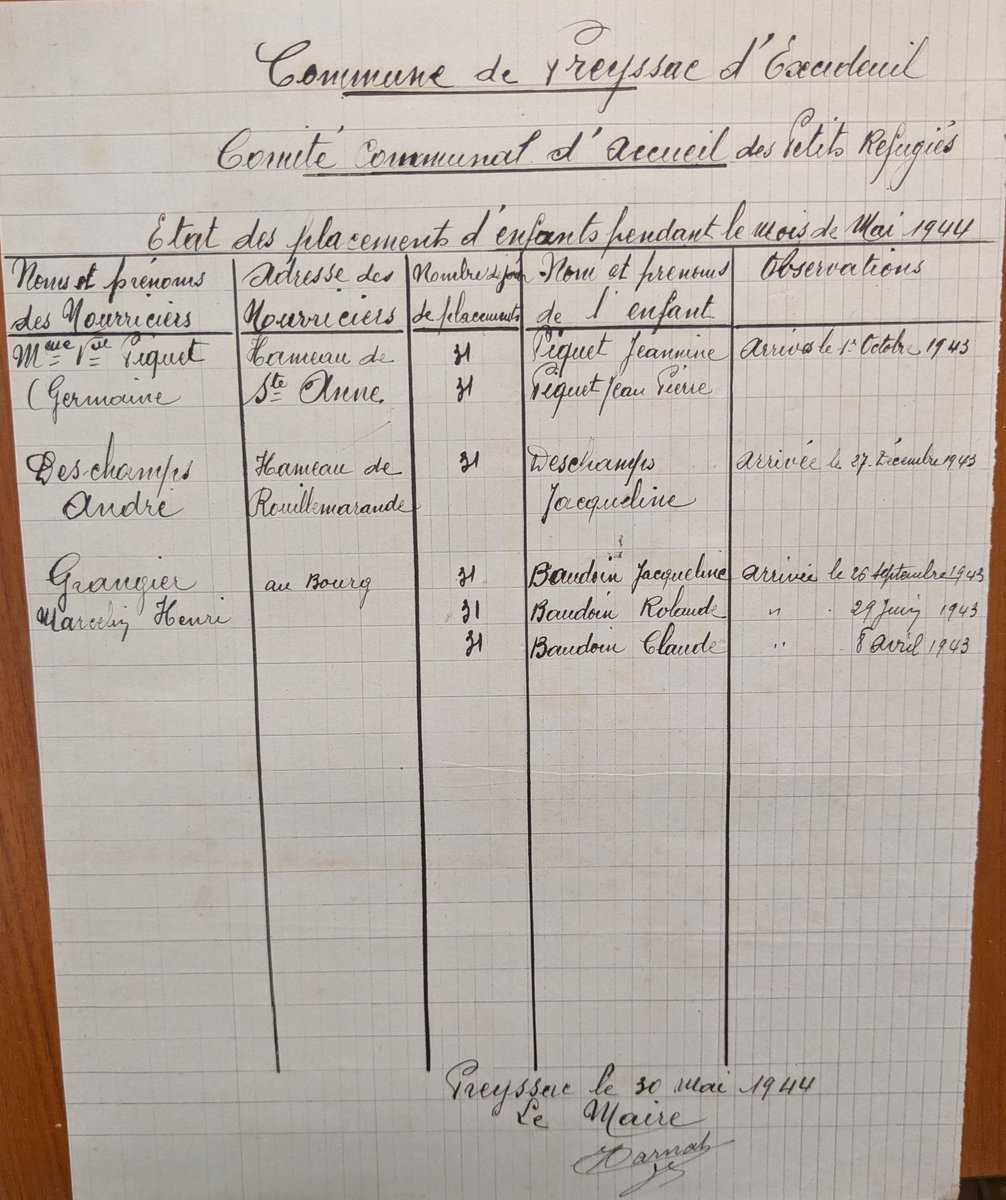 Commune de Preyssac d'Excideuil
Comité Communal d'Accueil des Petits Refugiés
Etat des placements d'enfants pendant le mois de Mai 1944
Noms et prénoms des Nourriciers Adresse des Nourriciers Nombre de jours de placements Nom et prénoms de l'enfant Observations
Mme Vve Piquet Hameau de 31 Piquet Jeannine Arrivés le 1er Octobre 1943
(Germaine Ste Anne. 31 Piquet Jean Pierre
Deschamps Hameau de 31 Deschamps arrivée le 27 Décembre 1943
André Rouillemarande Jacqueline
Grangier au Bourg 31 Baudoin Jacqueline arrivée le 26 septembre 1943
Marcelin Henri 31 Baudoin Rolande " 29 Juin 1943
31 Baudoin Claude " 8 avril 1943
Preyssac le 30 mai 1944
Le Maire